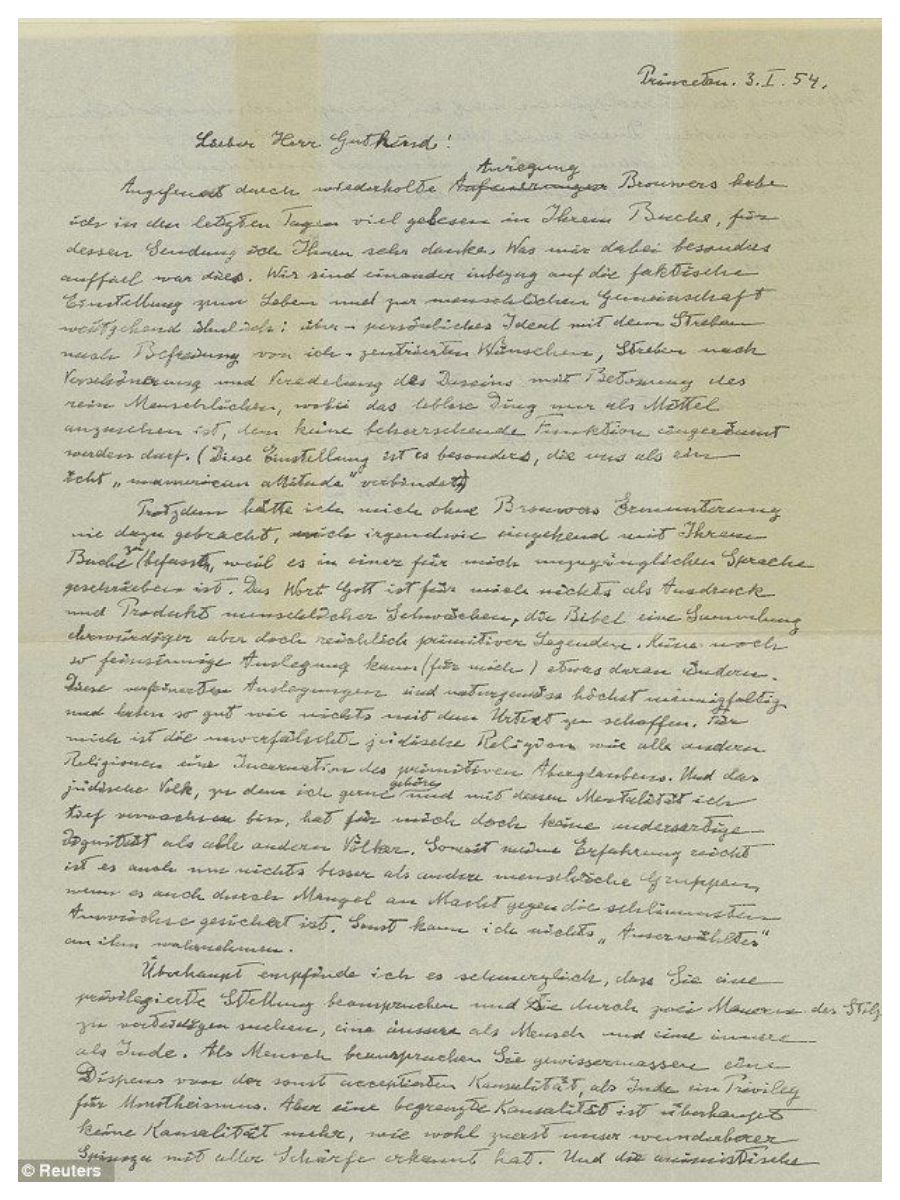 Princeton. 3. I. 54.
Lieber Herr Gutkind!
Anregung
Angefeuert durch wiederholte Anfeuerungen Brouwers habe
ich in den letzten Tagen viel gelesen in Ihrem Buche, für
dessen Sendung ich Ihnen sehr danke. Was mir dabei besonders
auffiel war dies. Wir sind einander inbezug auf die faktische
Einstellung zum Leben und zur menschlichen Gemeinschaft
weitgehend ähnlich: über-persönliches Ideal mit dem Streben
nach Befreiung von ich-zentrierten Wünschen, Streben nach
Verschönerung und Veredelung des Daseins mit Betonung des
rein Menschlichen, wobei das leblose Ding nur als Mittel
anzusehen ist, dem keine beherrschende Funktion eingeräumt
werden darf. (Diese Einstellung ist es besonders, die uns als ein
echt „unamerican attitude" verbindet.)
Trotzdem hätte ich mich ohne Brouwers Ermunterung
nie dazu gebracht, mich irgendwie eingehend mit Ihrem
Buche zu befassen, weil es in einer für mich unzugänglichen Sprache
geschrieben ist. Das Wort Gott ist für mich nichts als Ausdruck
und Produkt menschlicher Schwächen, die Bibel eine Sammlung
ehrwürdiger aber doch reichlich primitiver Legenden. Keine noch
so feinsinnige Auslegung kann (für mich) etwas daran ändern.
Diese verfeinerten Auslegungen sind naturgemäss höchst mannigfaltig
und haben so gut wie nichts mit dem Urtext zu schaffen. Für
mich ist die unverfälschte jüdische Religion wie alle anderen
Religionen eine Incarnation des primitiven Aberglaubens. Und das
jüdische Volk, zu dem ich gerne gehöre und mit dessen Mentalität ich
tief verwachsen bin, hat für mich doch keine andersartige
Dignität als alle anderen Völker. Soweit meine Erfahrung reicht
ist es auch um nichts besser als andere menschliche Gruppen,
wenn es auch durch Mangel an Macht gegen die schlimmsten
Auswüchse gesichert ist. Sonst kann ich nichts „Auserwähltes"
an ihm wahrnehmen.
Überhaupt empfinde ich es schmerzlich, dass Sie eine
privilegierte Stellung beanspruchen und sie durch zwei Mauern des Stolzes
zu verteidigen suchen, eine äussere als Mensch und eine innere
als Jude. Als Mensch beanspruchen Sie gewissermassen eine
Dispens von der sonst acceptierten Kausalität, als Jude ein Privileg
für Monotheismus. Aber eine begrenzte Kausalität ist überhaupt
keine Kausalität mehr, wie wohl zuerst unser wunderbarer
Spinoza mit aller Schärfe erkannt hat. Und die animistische
© Reuters